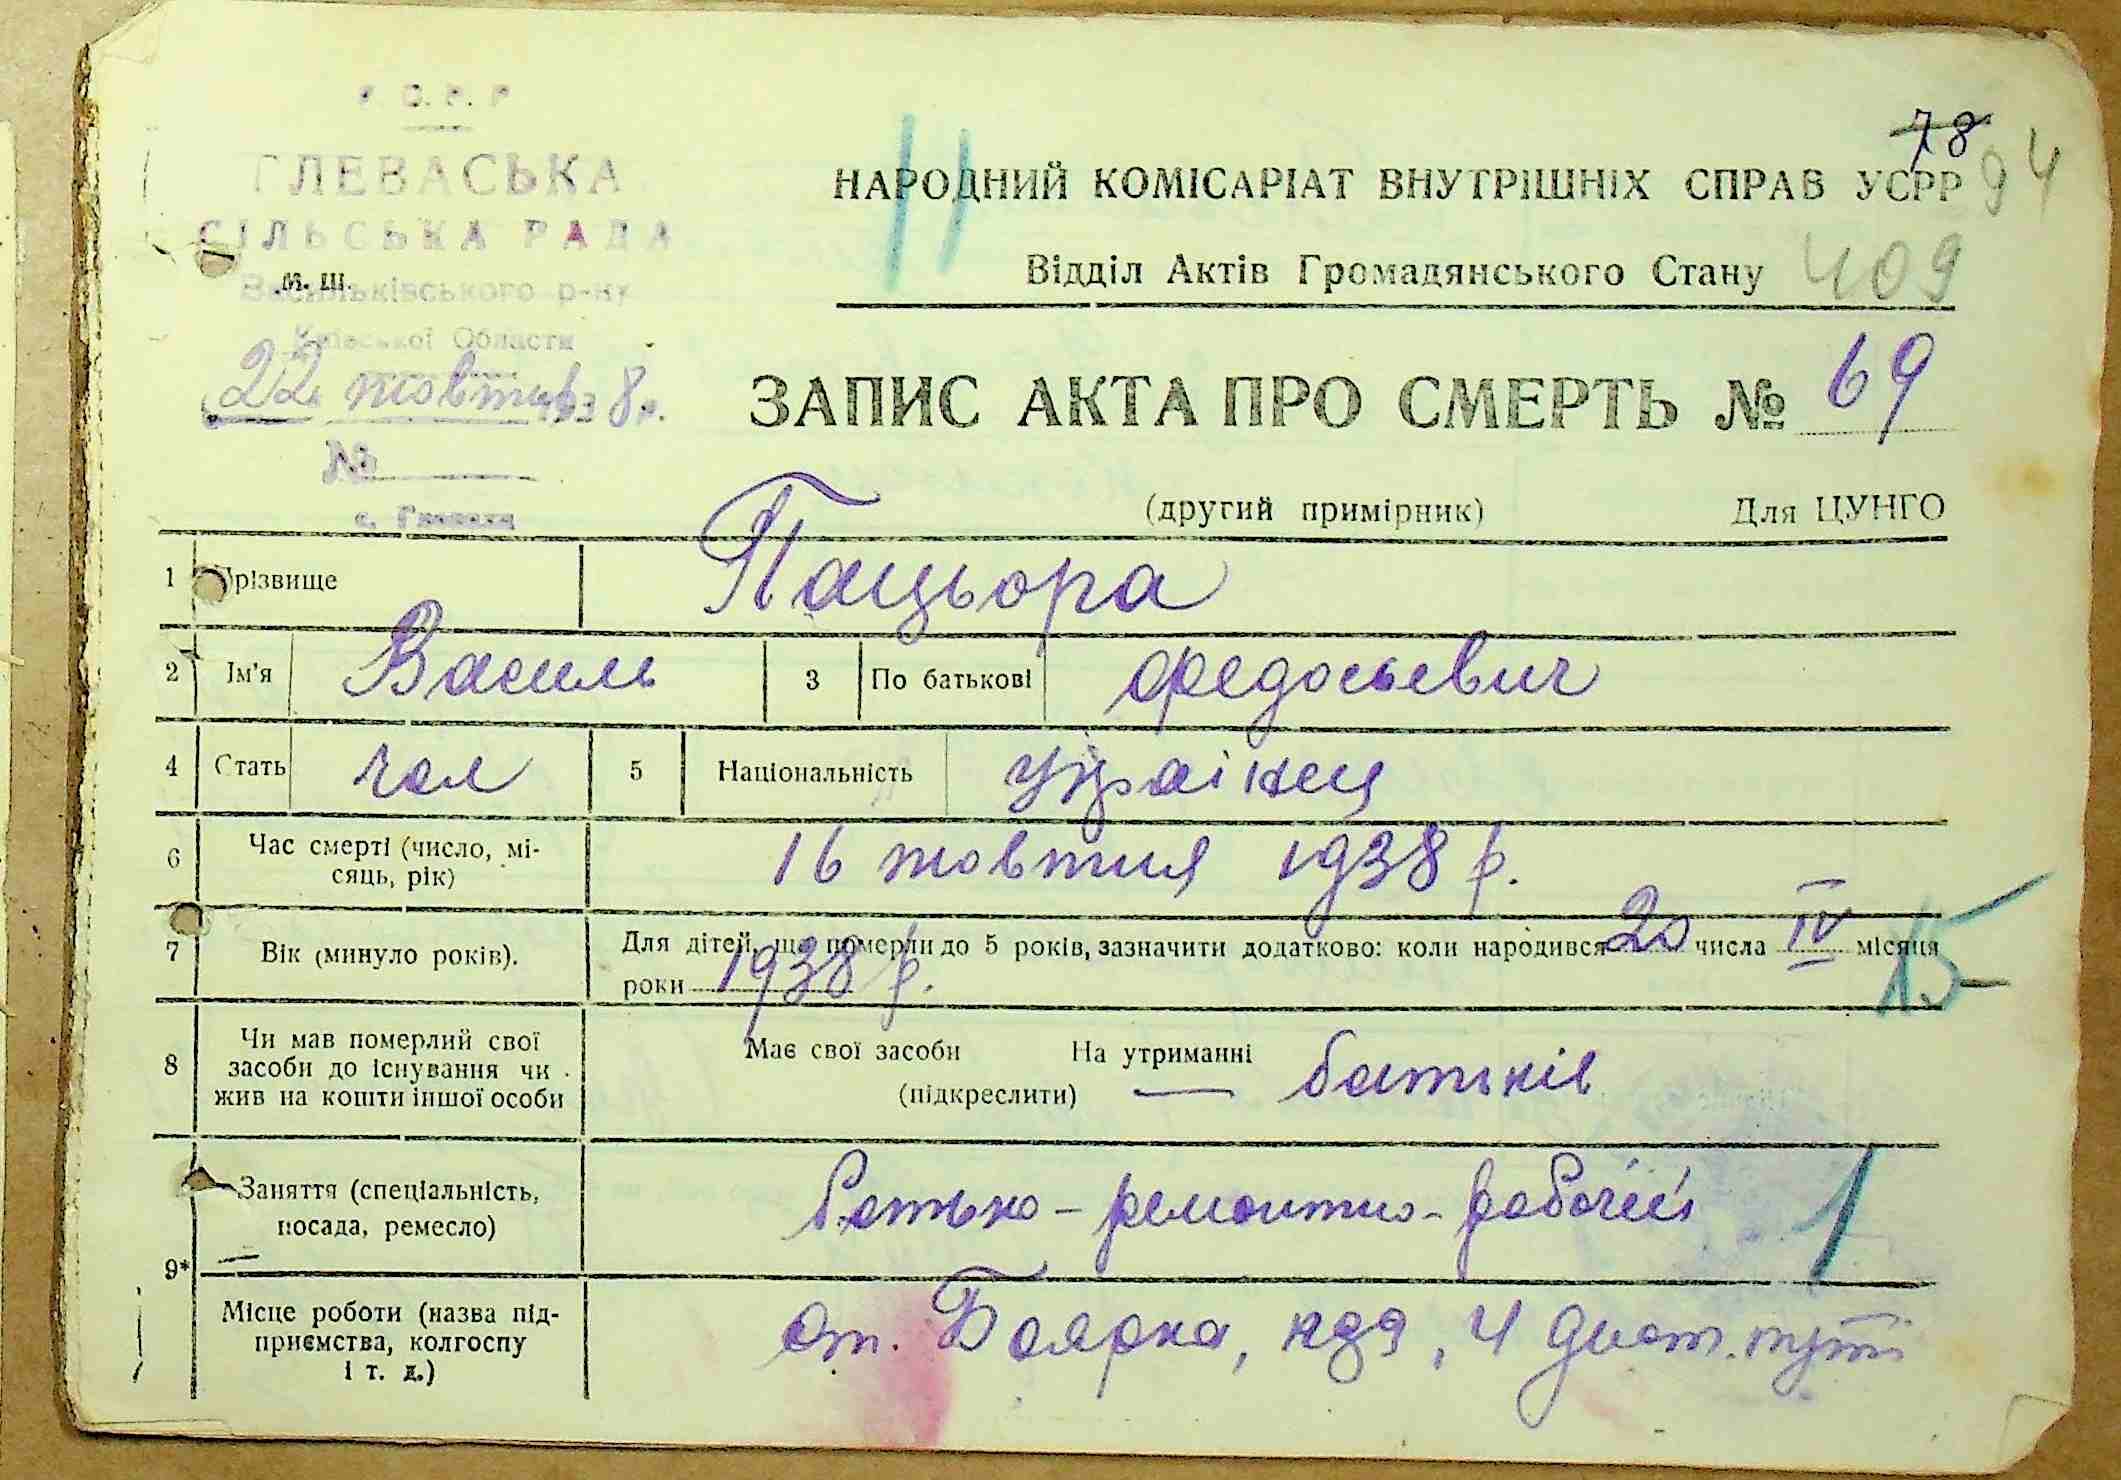 У.С.Р.Р
ГЛЕВАСЬКА
СІЛЬСЬКА РАДА
М. Ш.
Васильківського р-ну
Київської Области
22 жовтня 1938 р.
№
с. Глеваха
78
94
НАРОДНИЙ КОМІСАРІАТ ВНУТРІШНІХ СПРАВ УСРР
Відділ Актів Громадянського Стану
409
ЗАПИС АКТА ПРО СМЕРТЬ № 69
(другий примірник) Для ЦУНГО
1 Прізвище Пацьора
2 Ім'я Василь 3 По батькові Федосьевич
4 Стать чол 5 Національність українец
6 Час смерті (число, мі-
сяць, рік) 16 жовтня 1938 р.
7 Вік (минуло років). Для дітей, що померли до 5 років, зазначити додатково: коли народився 20 числа IV місяця
роки 1938 р.
15
8 Чи мав померлий свої
засоби до існування чи
жив на кошти іншої особи
Має свої засоби На утриманні батьків
(підкреслити)
9* Заняття (спеціальність,
посада, ремесло) Батько - ремонтно - рабочий
1
Місце роботи (назва під-
приємства, колгоспу
і т. д.) ст. Боярка, 4 дист. путі